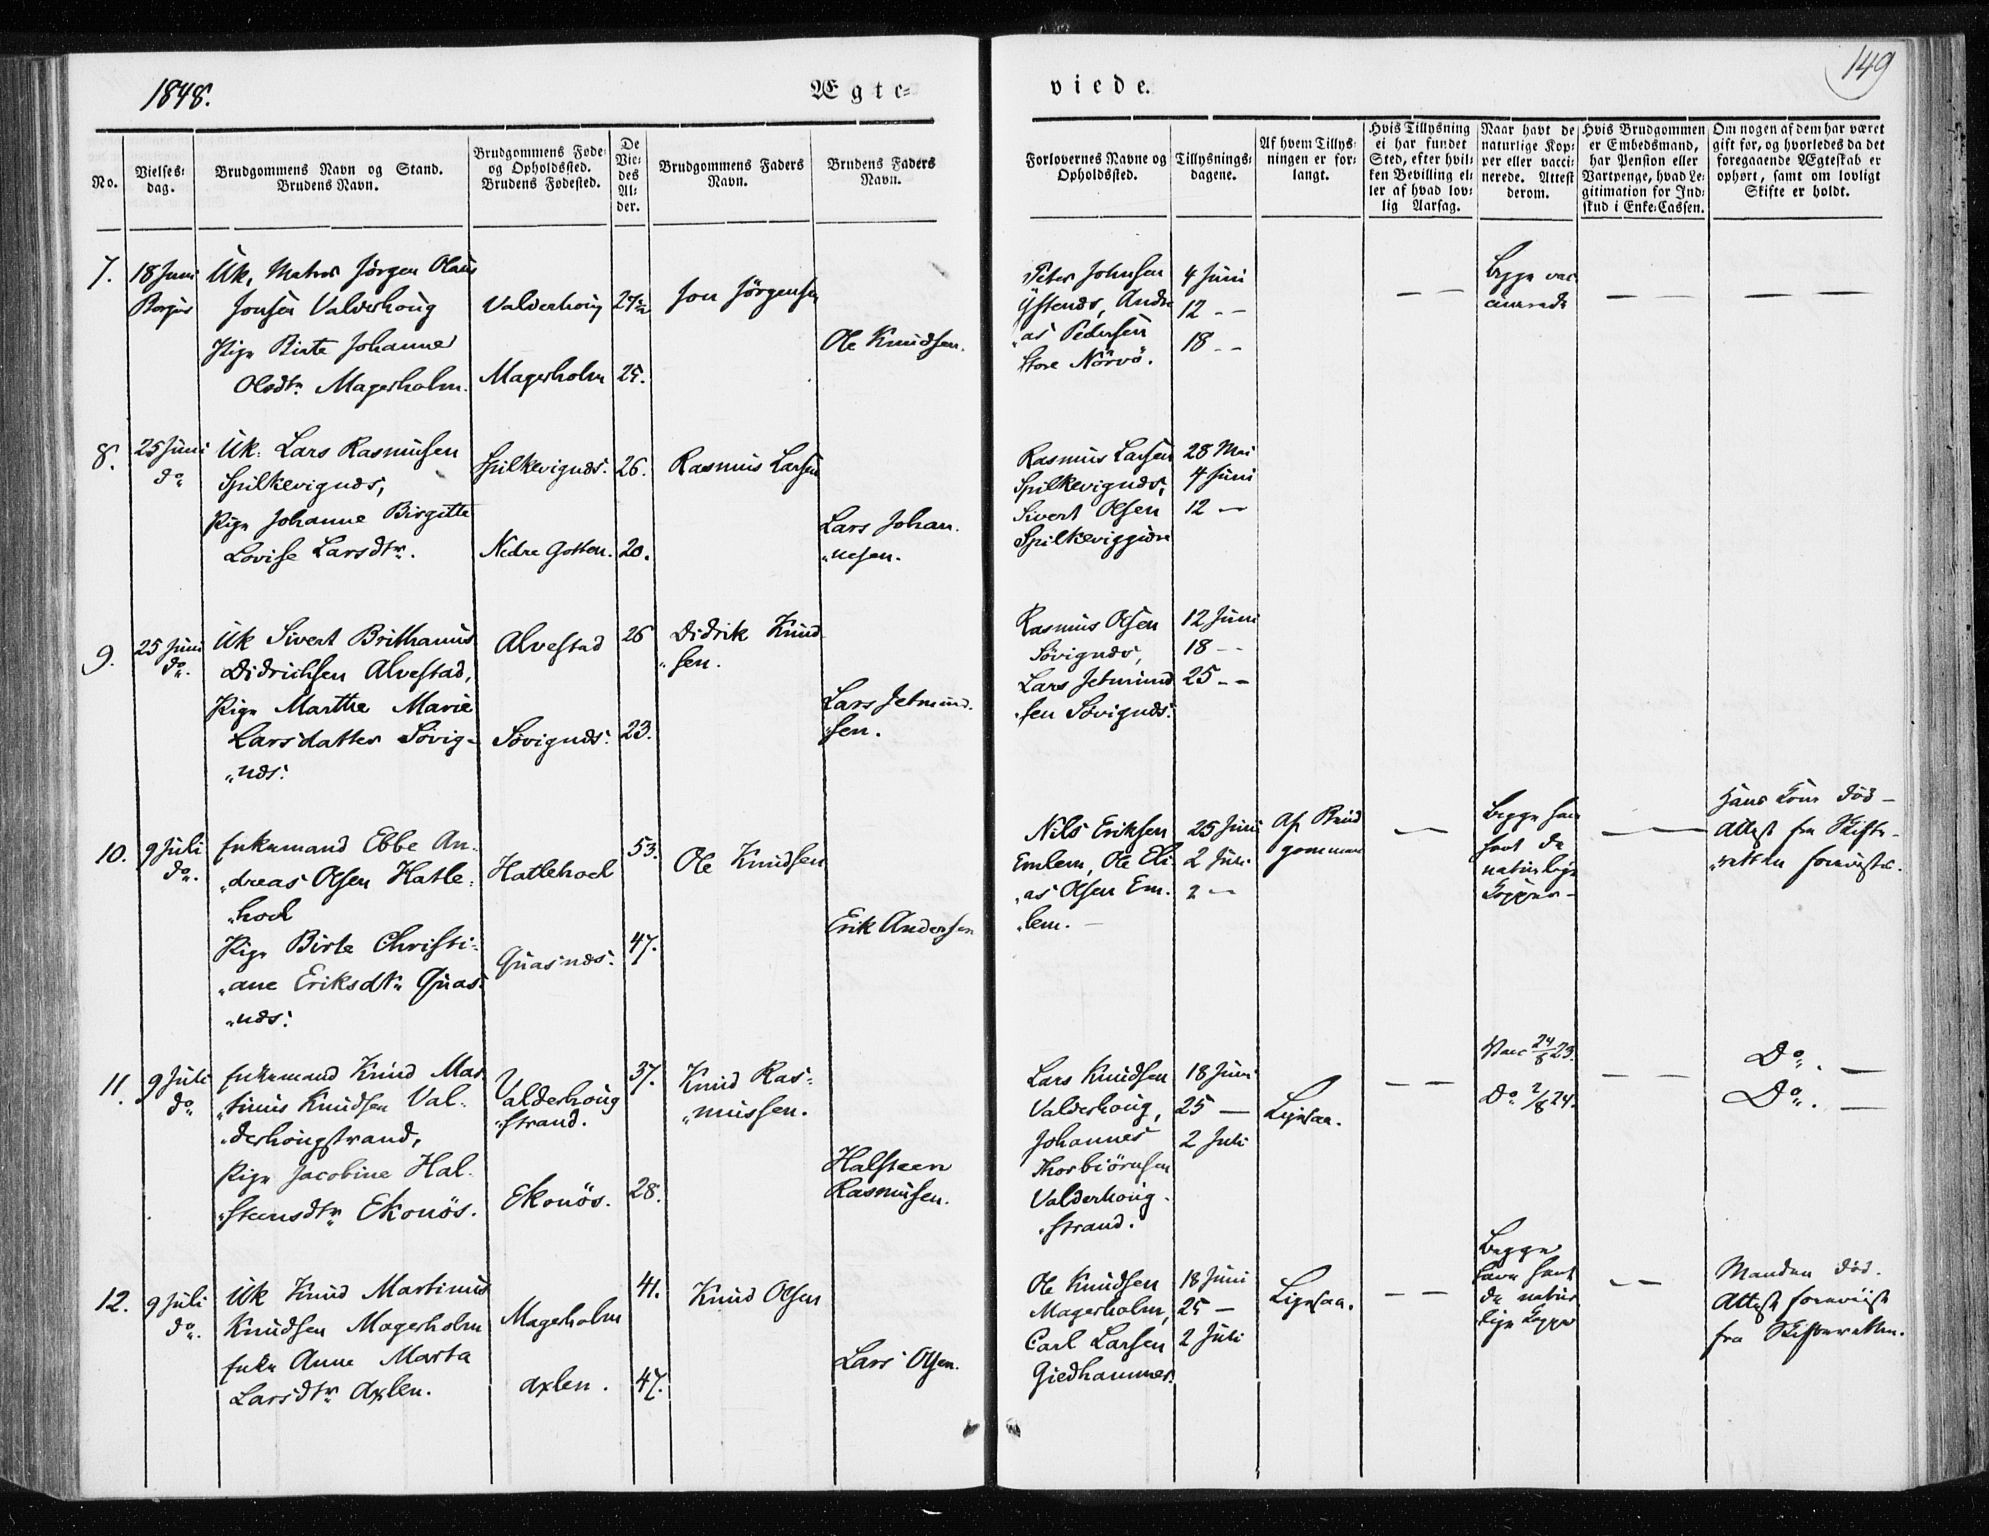 1848.
Ægte-
viede.
149
No.
Vielses-
dag.
Brudgommens Navn og Stand.
Brudens Navn.
Brudgommens Føde-
og Opholdssted.
Brudens Fødested.
De
Vie-
des
Al-
der.
Brudgommens Faders
Navn.
Brudens Faders
Navn.
Forlovernes Navne og
Opholdssted.
Tillysnings-
dagene.
Af hvem Tillys-
ningen er for-
langt.
Hvis Tillysning
ei har fundet
Sted, efter hvil-
ken Bevilling el-
ler af hvad lov-
lig Aarsag.
Naar havt de
naturlige Kop-
per eller vacci-
nerede. Attest
derom.
Hvis Brudgommen
er Embedsmand,
har Pension eller
Vartpenge, hvad Le-
gitimation for Ind-
skud i Enke-Cassen.
Om nogen af dem har været
gift før, og hvorledes da det
foregaaende Ægteskab er
ophørt, samt om lovligt
Skifte er holdt.
7.
18 Juni
Borgus
Uk, Matros Jørgen Olaus
Jonsen Valderhoug
Pige Birte Johanne
Olsdtr Magerholm.
Valderhoug
Magerholm
25.
Jon Jørgensen
Ole Knudsen.
Peter Johnsen
Ystenæs, Andre
"as Pedersen
Store Nörvö.
4 Juni
12 --
18 --
Begge vac
cinerede
8.
25 Juni
do
Uk: Lars Rasmusen
Spilkevignæs,
Pige Johanne Birgitte
Lovise Larsdtr.
Spilkevignæs.
Nedre Gotten.
26.
20.
Rasmus Larsen
Lars Johan
"nesen.
Rasmus Larsen
Spilkevignæs,
Sivert Olsen
Spilkeviggjøre
28 Mai
4 Juni
12 —
9.
25 Juni
do.
Uk Sivert Brithanius
Didrichsen Alvestad,
Pige Marthe Marie
Larsdatter Sövig-
"næs:
Alvestad
Sövignæs:
26
23.
Didrik Knud
"sen.
Lars Jetmund.
"sen.
Rasmus Olsen
Sövignæs,
Lars Jetmund
"sen Sövignæs:
12 Juni
18 --
25 --
10.
9 Juli
do.
Enkemand Ebbe An-
"dreas Olsen Hatle-
"hoel
Pige Birte Christi-
"ane Eriksdtr Guas-
"næs:
Hatlehoel
Guasnæs:
53.
47.
Ole Knudsen
Erik Andersen
Nils Eriksen
Emlem, Ole Eli
"as Olsen Em-
"lem. —
25 Juni
2 Juli
2 —
Af Brud
gommen
Begge have
havt de
naturlige
Kopper —
Hans Kone død -
Attest fra Skifte-
"retten foreviste.
11.
9 Juli
do
Enkemand Knud Mar
"tinus Knudsen Val-
"derhougstrand,
Pige Jacobine Hal-
"steensdtr Ekonös.
Valderhoug
"strand.
Ekonös.
37.
28.
Knud Ras-
"mussen.
Halsteen
Rasmusen.
Lars Knudsen
Valderhoug,
Johannes
Thorbiörnsen
Valderhoug-
"strand.
18 Juni
25 —
2 Juli
Ligesaa.
Vacc 24/8 23.
Do 2/8 24.
Do. —
Do. —
12.
9 Juli
do.
Uk Knud Martinus
Knudsen Magerholm
Enke Anne Marta
Larsdtr Axlen.
Magerholm
Axlen.
41.
47.
Knud Olsen
Lars Olsen.
Ole Knudsen
Magerholm,
Carl Larsen
Giedhammer.
18 Juni
25 —
2 Juli
Ligesaa.
Begge
have havt
de natur
lige Kopper
Manden død.
Attest foreviist
fra Skifteretten.